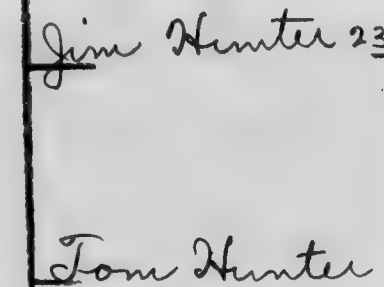 Jim Hunter 23
Tom Hunter